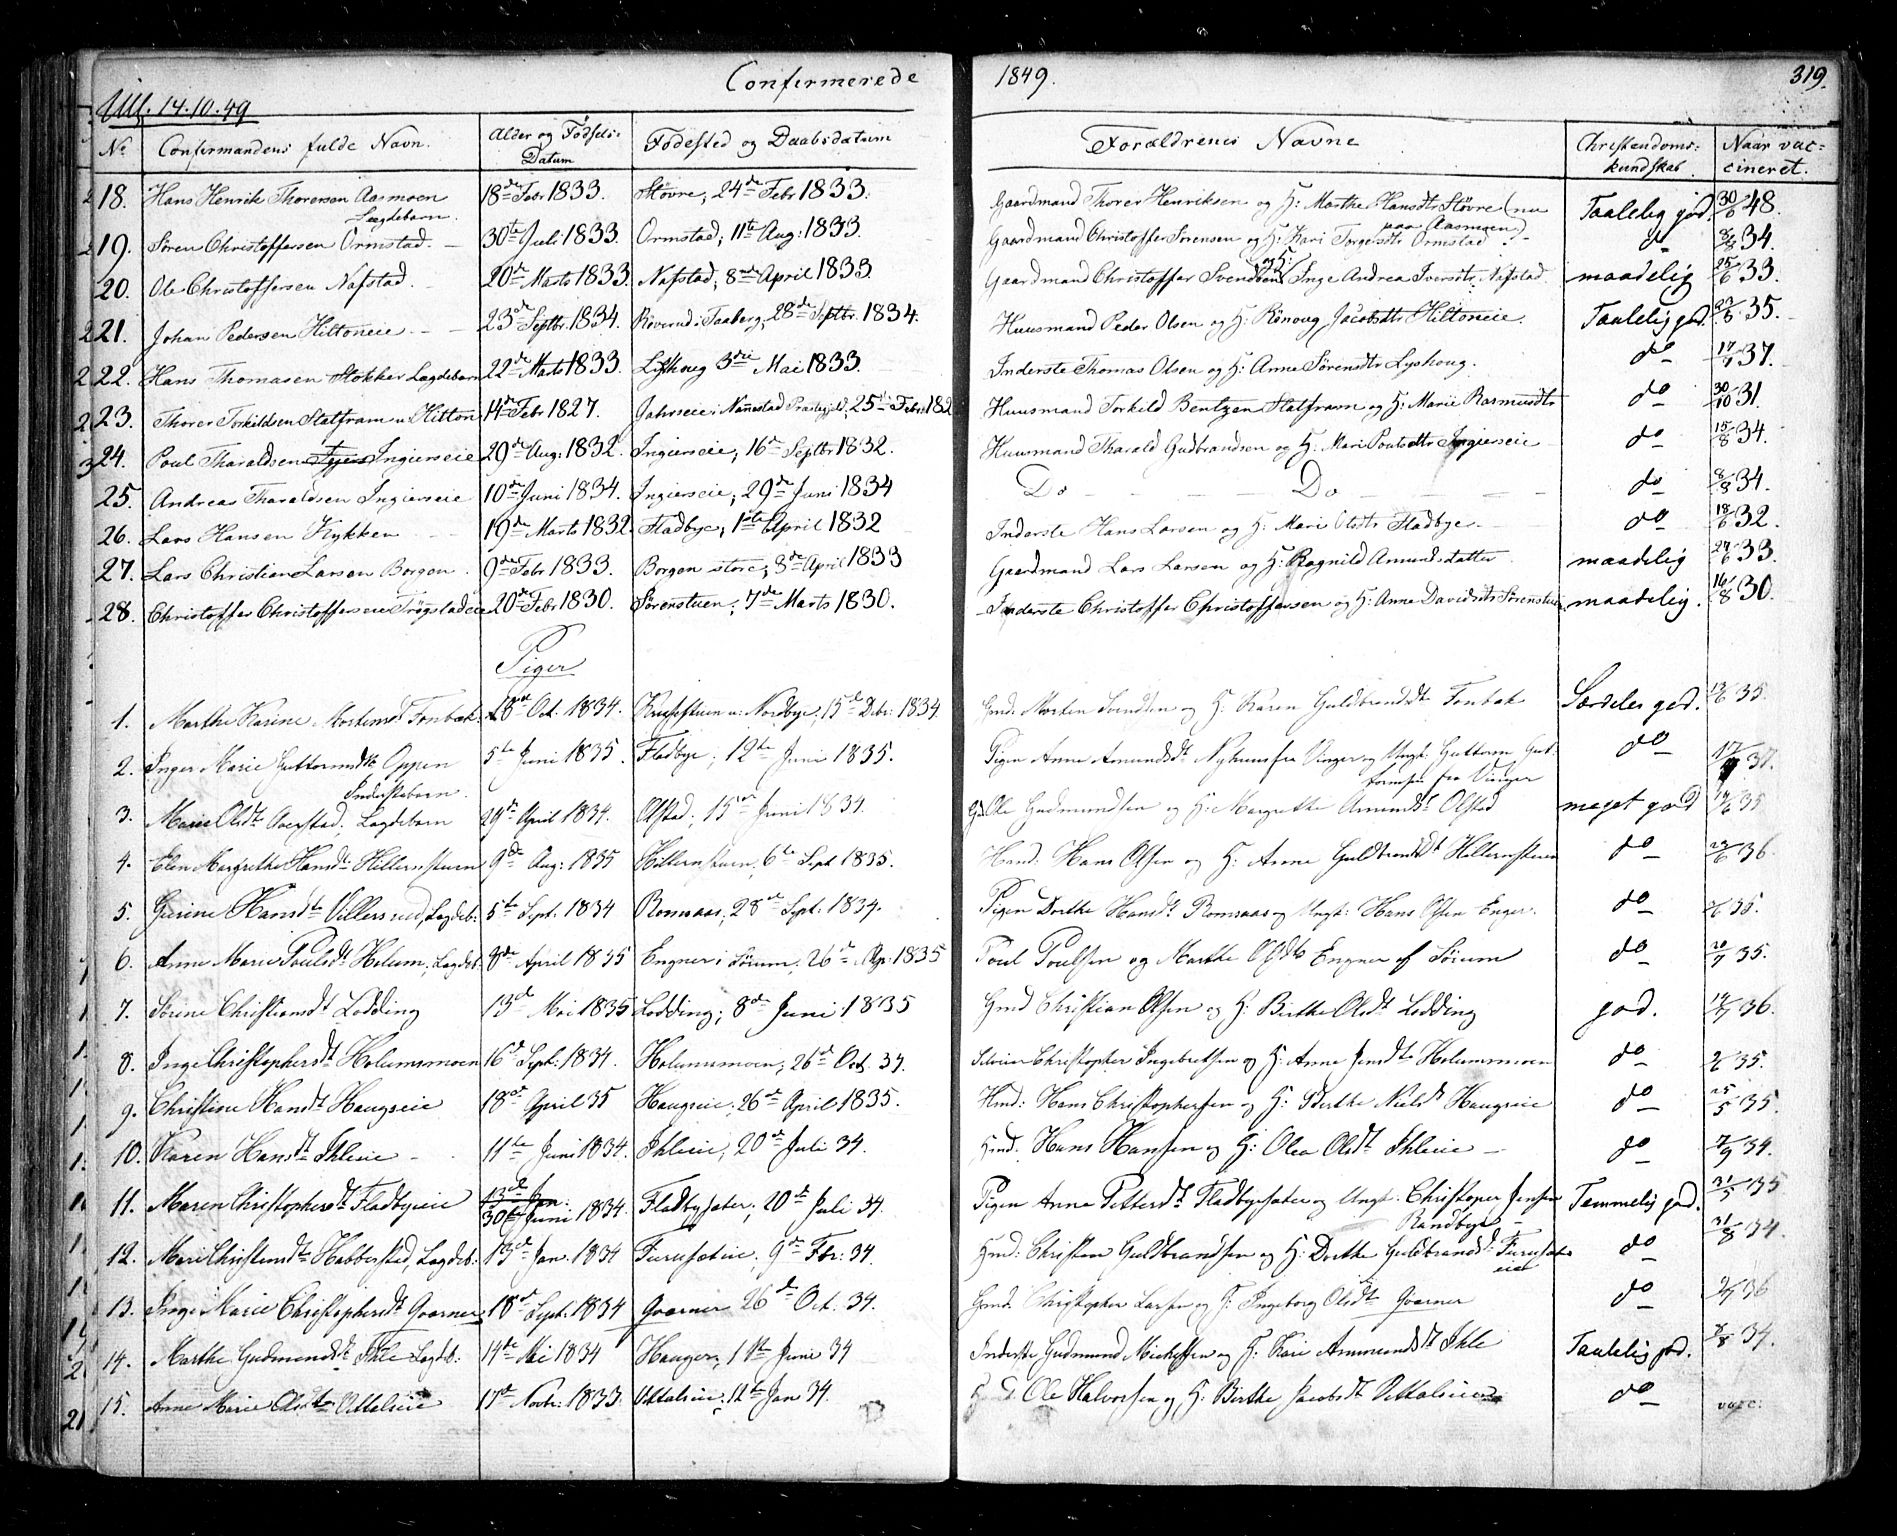 Confirmerede 1849. 319.
Ull. 14.10.49
No Confirmandens fulde Navn. Alder og Fødsels-Datum Fødested og Daabsdatum Forældrenes Navne Christendoms-kundskab. Naar vac-cineret.
18. Hans Henrik Thorersen Aasmoen Lægdebarn. 18de Febr 1833. Støvre, 24de Febr 1833. Gaardmand Thorer Henriksen og H: Marthe Hansdtr Støvre (nu paa Aasmoen) Taalelig god. 30/6 48.
19. Søren Christoffersen Ormstad. 30te Juli 1833. Ormstad; 11te Aug: 1833. Gaardmand Christoffer Sørensen og H: Kari Torgersdtr Ormstad. do 8/8 34.
20. Ole Christoffersen Nafstad. 20de Marts 1833. Nafstad; 8de April 1833. Gaardmand Christoffer Svendsen og H: Inge Andrea Iversdtr Nafstad. maadelig 25/6 33.
21. Johan Pedersen Hiltoneie. 23de Septbr. 1834. i Faaberg, 28de Septbr. 1834. Huusmand Peder Olsen og H: Rønoug Jacobsdtr Hiltoneie. Taalelig god. 35.
22. Hans Thomasen Stokker Lægdebarn 22de Marts 1833. Lyshoug 3die Mai 1833. Inderste Thomas Olsen og H: Anne Sørensdtr Lyshoug. do 37.
23. Thorer Torkildsen Statfram u. Hilton 14de Febr 1827. Jahrseie i Nannestad Præstegjeld, 25de Febr 182 Huusmand Torkild Bentzen Statfram og H: Marie Rasmusdtr do 30/10 31.
24. Poul Tharaldsen Ingierseie 29de Aug: 1832. Ingierseie; 16de Septbr 1832. Huusmand Tharald Gudbrandsen og H: Mari Poulsdtr Ingierseie do 15/8 34.
25. Andreas Tharaldsen Ingierseie 10de Juni 1834. Ingierseie; 29de Juni 1834 Do Do do 8/8 34.
26. Lars Hansen Kykken 19de Marts 1832. Fladbye; 1ste April 1832 Inderste Hans Larsen og H: Mari Olsdtr Fladbye. do 18/6 32.
27. Lars Christian Larsen Borgen. 9de Febr 1833. Borgen store; 8de April 1833 Gaardmand Lars Larsen og H: Ragnild Amundsdatter maadelig 33.
28. Christoffer Christoffersen Trøgstadeie 20de Febr 1830. Sørenstuen; 7de Marts 1830. Inderste Christoffer Christoffersen og H: Anne Davidsdtr Sørenstuen maadelig. 16/8 30.
Piger
1. Marthe Karine Mortensdt Fonbæk. 28de Oct. 1834. u: Nordbye, 15de Dbr: 1834. Gmd: Morten Svendsen og H: Karen Guldbrandsdt Fonbæk Særdeles god. 35.
2. Inger Marie Guttormsdtr Oppen Inderstebarn. 5te Juni 1835. Fladbye; 12te Juni 1835. Pigen Anne Amundsdt Nyhuus fra Vinger og Ungk: Guttorm Guttormsen fra Vinger do 37.
3. Maria Olsdt Aaerstad, Lægdebarn 29de April 1834. Olstad; 15de Juni 1834. Ole Gudmundsen og H: Margrethe Amundsdt Olstad meget god 35
4. Elen Margrethe Hansdt Hilternstuen 9de Aug: 1835 Hilternstuen, 6te Sept 1835. Hmd: Hans Olsen og H: Anne Guldbrandsdt Hilternstuen do 36.
5. Gurine Hansdt Villersrud, Lægdeb: 5te Sept: 1834 Romsaas, 28de Sept: 1834. Pigen Dorthe Hansdt Romsaas og Ungk: Hans Olsen Enger. do 35.
6. Anne Marie Poulsdt Holum, Lægdeb: 8de April 1835 Engner i Sørum. 26de Ap: 1835 Poul Poulsen og Marthe Olsdtr Engner af Sørum do 35.
7. Sørine Christiansdt Lodding 13de Mai 1835 Lodding; 8de Juni 1835 Gmd Christian Olsen og H: Birthe Olsdt Lodding god. 36.
8. Inge Christophersdt Holumsmoen 16de Sept: 1834. Holumsmoen; 26de Oct. 34. Christopher Ingebretsen og H: Anne Jensdtr Holumsmoen do 35.
9. Christine Hansdt Haugseie 18de April 35 Haugseie. 26de April 1835. Hmd: Hans Christophersen og H: Berthe Nielsdt Haugseie do 25/5 35.
10. Karen Hansdt Ihleeie 11te Juni 1834. Ihleeie, 20de Juli 34. Hmd. Hans Hansen og H: Olea Olsdt Ihleeie do 34.
11. Maren Christophersdt Fladbyeie 13de Jan: 30te Juni 1834. Fladbysæter; 20de Juli 34. Pigen Anne Pettersdt Fladbysæter og Ungk: Christoper Jensen Randbye Temmelig god. 31/5 35
12. Mari Christiansdt Habberstad, Lægdeb: 13de Jan. 1834 Furusæteie, 9de Fbr: 34. Hmd: Christian Guldbrandsen og H: Dorthe Guldbrandsdt Furusæter eiet do 31/8 34.
13. Inge Marie Christophersdt Gvarner 18de Sept: 1834 Gvarner 26de Oct. 34. Gmd. Christopher Larsen og H: Ingeborg Olsdt Gvarner do 36
14. Marthe Gudmundsdt Ihle Lægdb: 14de Mai 1834 Hauger; 1ste Juni 34 Inderste Gudmund Mickelsen og H: Kari Amundsdt Ihle Taalelig god. 34.
15. Anne Marie Olsdtr Vittalseie 17de Novbr: 1833. Vittalseie; 12te Jan 34. Ole Halvorsen og H: Birthe Jacobsdt Vittalseie do vacc: